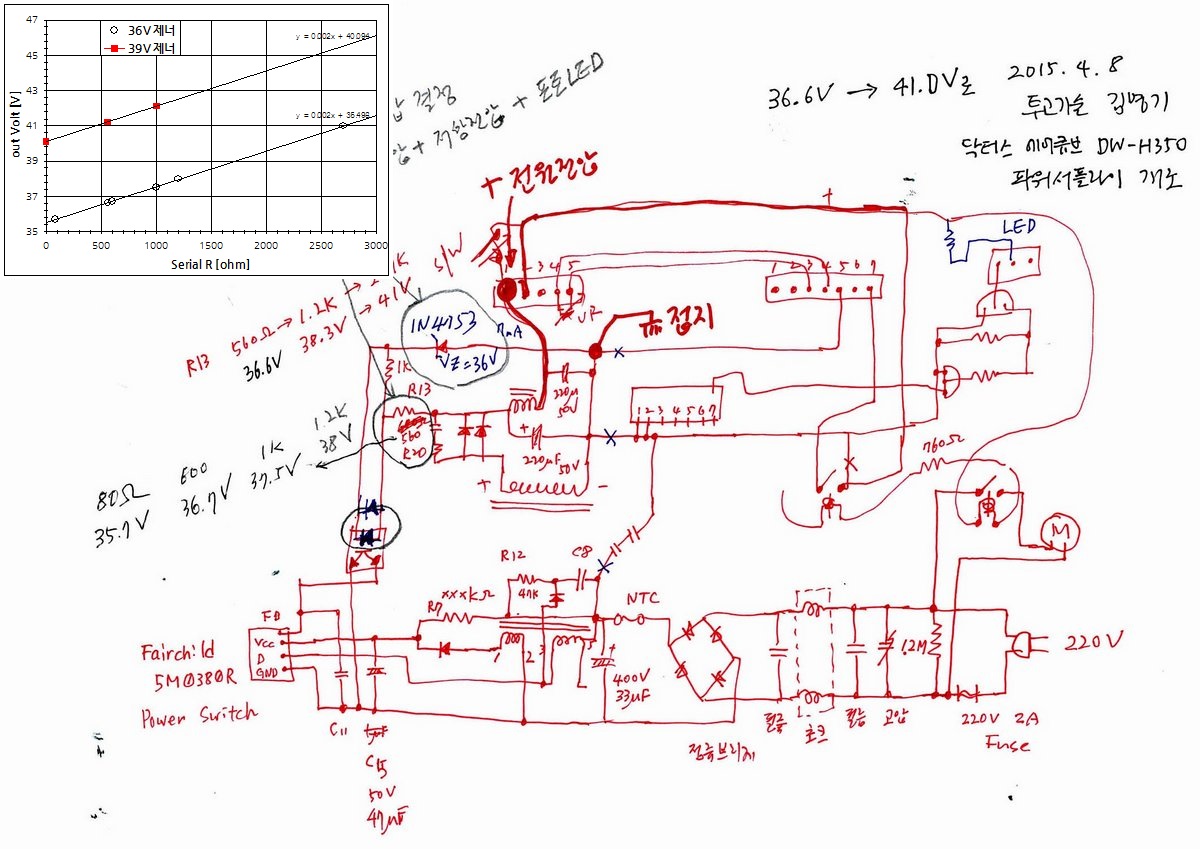 47
45
43
41
39
37
35
out Volt [V]
36V 제너
39V 제너
y = 0.002x + 40.094
y = 0.002x + 35.499
0 500 1000 1500 2000 2500 3000
Serial R [ohm]
압 결정
압 + 저항전압 + 포토LED
36.6V → 41.0V로
2015. 4. 8
투고가술 김명기
닥터스 에어큐브 DW-H350
파워서플라이 개조
+ 전원전압
+
LED
S/W
3 4 5
1 2 3 4 5 6 7
1N4753
VZ=36V
접지
R13 560Ω → 1.2K → 1K
36.6V 38.3V → 41V
1K
R13
560
R20
220μ
50V
1 2 3 4 5 6 7
+
220μF
50V
+ -
80Ω 600 1K 1.2K
35.7V 36.7V 37.5V 38V
760Ω
M
R12
47K
C8
R7 xxxKΩ
NTC
FB
Vcc
D
GND
Fairchild
5M0380R
Power Switch
1 2 3 5
+
400V
33μF
1.2M
220V
C11
C15
50V
47μF
정류브리지
필름
초크
필름
고압
220V 2A
Fuse